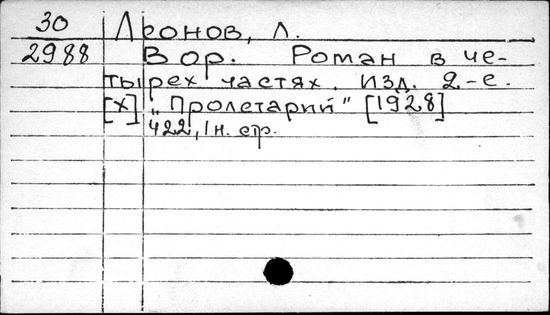 30 Леонов, Л.
2988 Вор. Роман в че-
тырех частях. Изд. 2-е.
[X] „Пролетарий" [1928]
422, 1 н. стр.